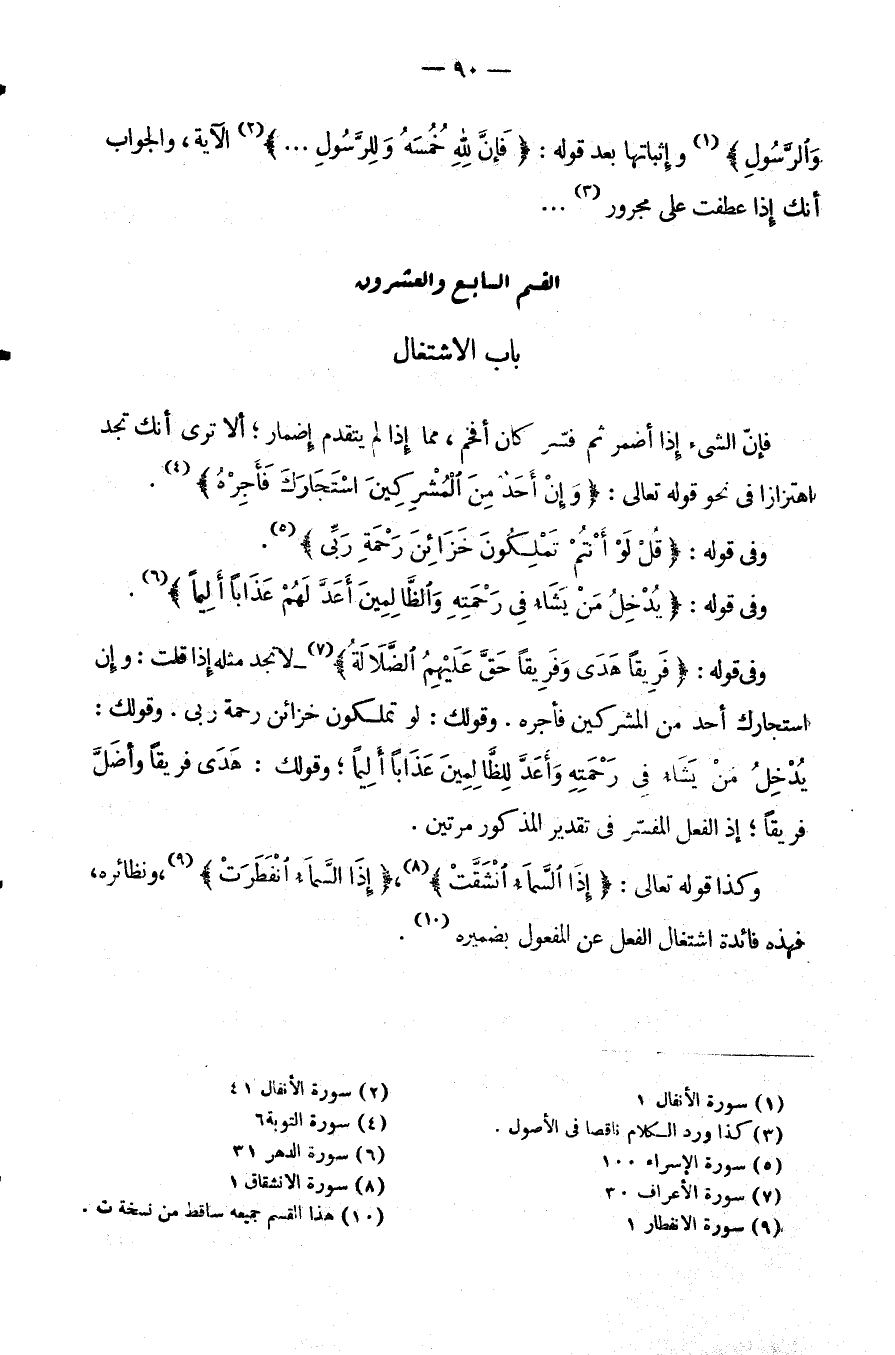 — ٩٠ —
وَٱلرَّسُولِ ﴾ (١) و إثباتها بعد قوله : ﴿ فَإِنَّ لِلهِ خُمُسَهُ وَ لِلرَّسُولِ ... ﴾(٢) الآية ، والجواب
أنك إذا عطفت على مجرور (٣) ...
القسم السابع والعشرون
باب الاشتغال
فإنّ الشىء إذا أضمر ثم فسّر كان أفخم ، مما إذا لم يتقدم إضمار ؛ ألا ترى أنك تجد
اهتزازا فى نحو قوله تعالى : ﴿ وَ إِنْ أَحَدٌ مِنَ ٱلْمُشْرِكِينَ اسْتَجَارَكَ فَأَجِرْهُ ﴾ (٤) .
وفى قوله : ﴿ قُلْ لَوْ أَنْتُمْ تَمْلِكُونَ خَزَائِنَ رَحْمَةِ رَبِّى ﴾ (٥).
وفى قوله : ﴿ يُدْخِلُ مَنْ يَشَاءِ فِى رَحْمَتِهِ وَٱلظَّالِمِينَ أَعَدَّ لَهُمْ عَذَاباً أَلِيماً ﴾(٦) .
وفى قوله : ﴿ فَرِيقاً هَدَى وَفَرِيقاً حَقَّ عَلَيْهِمُ ٱلضَّلَالَةُ ﴾(٧) ـ لا تجد مثله إذا قلت : و إن
استجارك أحد من المشركين فأجره . وقولك : لو تملكون خزائن رحمة ربى . وقولك :
يُدْخِلُ مَنْ يَشَاء فى رَحْمَتِهِ وَأَعَدَّ لِلظَّالِمِينَ عَذَاباً أَلِيماً ؛ وقولك : هَدَى فريقاً وأضَلَّ
فريقاً ؛ إذ الفعل المفسّر فى تقدير المذكور مرتين .
وكذا قوله تعالى : ﴿ إِذَا ٱلسَّمَاءِ ٱنْشَقَّتْ ﴾(٨)، ﴿ إِذَا السَّمَاءِ ٱنْفَطَرَتْ ﴾ (٩)، ونظائره،
فهذه فائدة اشتغال الفعل عن المفعول بضميره (١٠) .
(١) سورة الأنفال ١
(٢) سورة الأنفال ٤١
(٣) كذا ورد الكلام ناقصا فى الأصول .
(٤) سورة التوبة٦
(٥) سورة الإسراء ١٠٠
(٦) سورة الدهر ٣١
(٧) سورة الأعراف ٣٠
(٨) سورة الانشقاق ١
(٩) سورة الانفطار ١
(١٠) هذا القسم جميعه ساقط من نسخة ت .